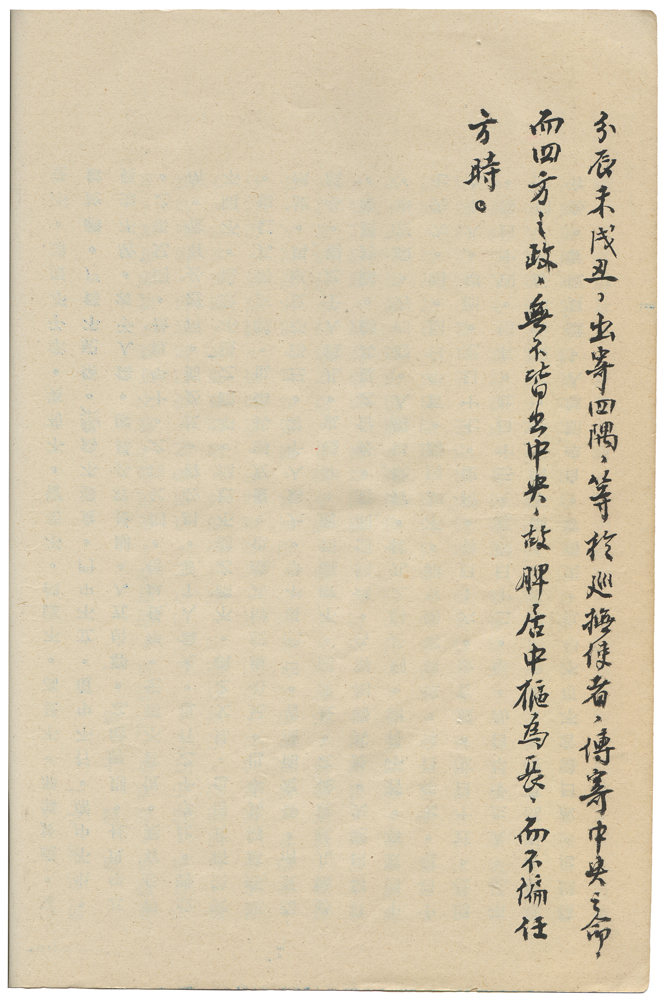 分辰未戌丑，出寄四隅，等於巡撫使者，傳寄中央之命，
而四方之政，無不皆出中央，故脾居中樞為長，而不偏任
方時。